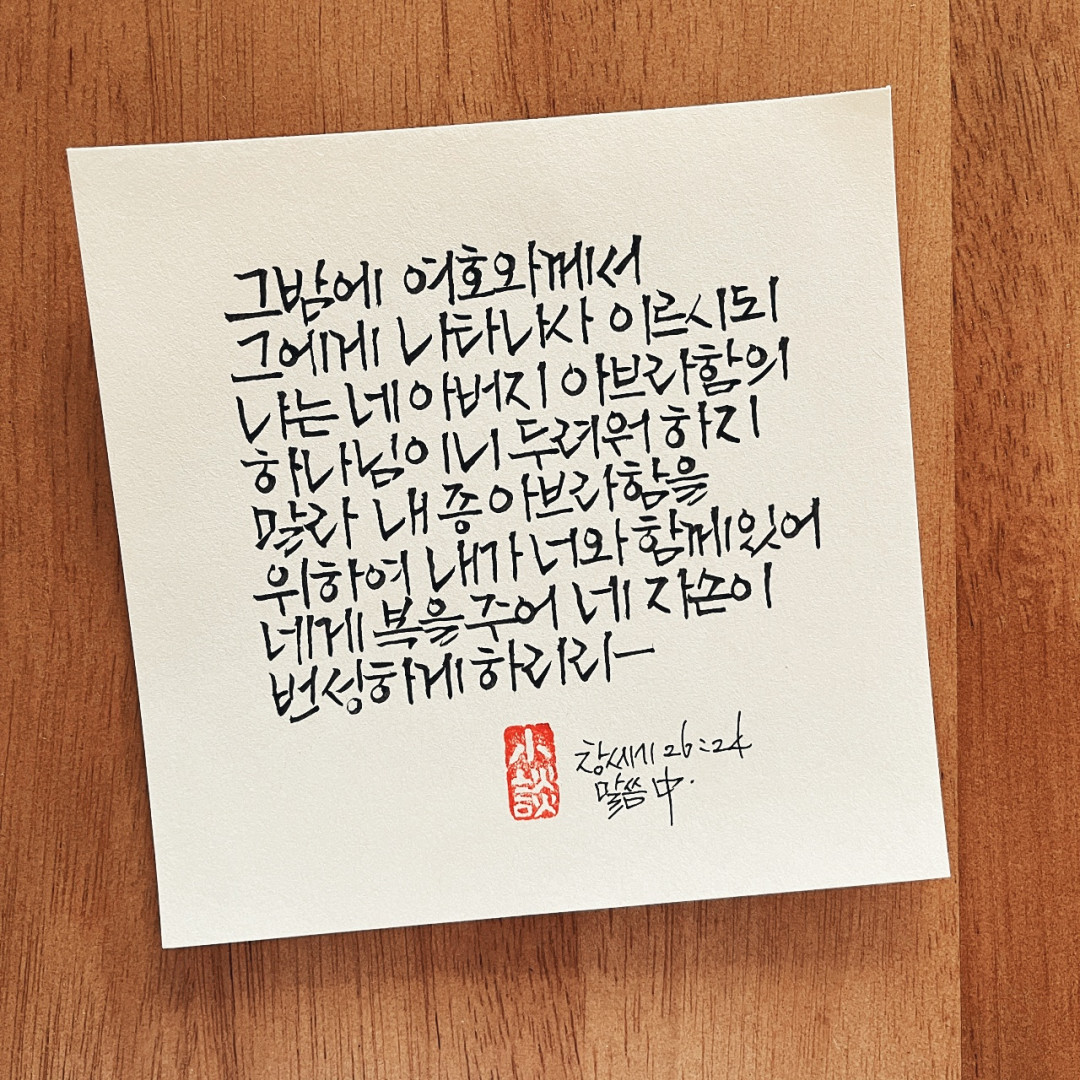 그밤에 여호와께서
그에게 나타나사 이르시되
나는 네 아버지 아브라함의
하나님이니 두려워 하지
말라 내 종 아브라함을
위하여 내가 너와 함께있어
네게 복을 주어 네 자손이
번성하게 하리라
창세기 26:24
말씀 中.
小談